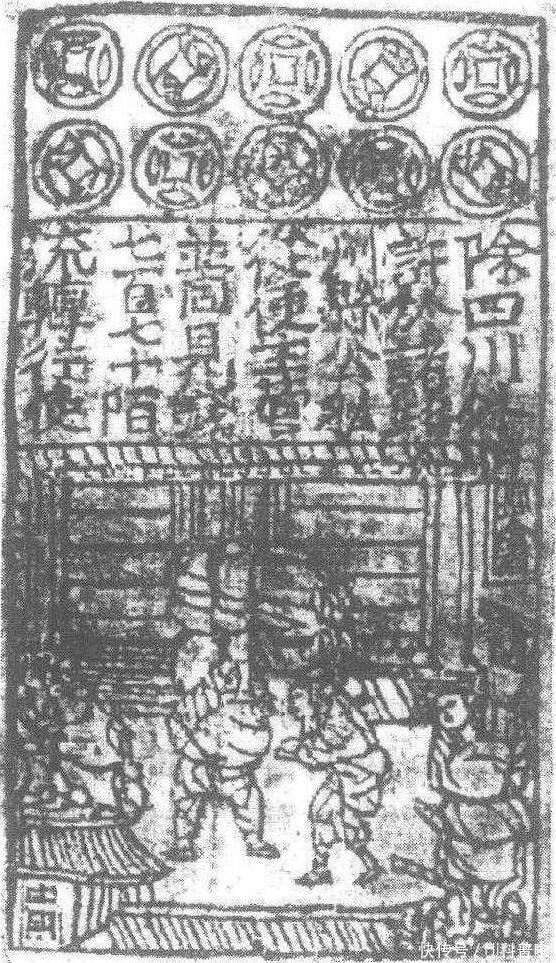 除四川外
許於諸路
州縣公私
從便主管
並同見錢
七百七十陌
流轉行使
快传号 /